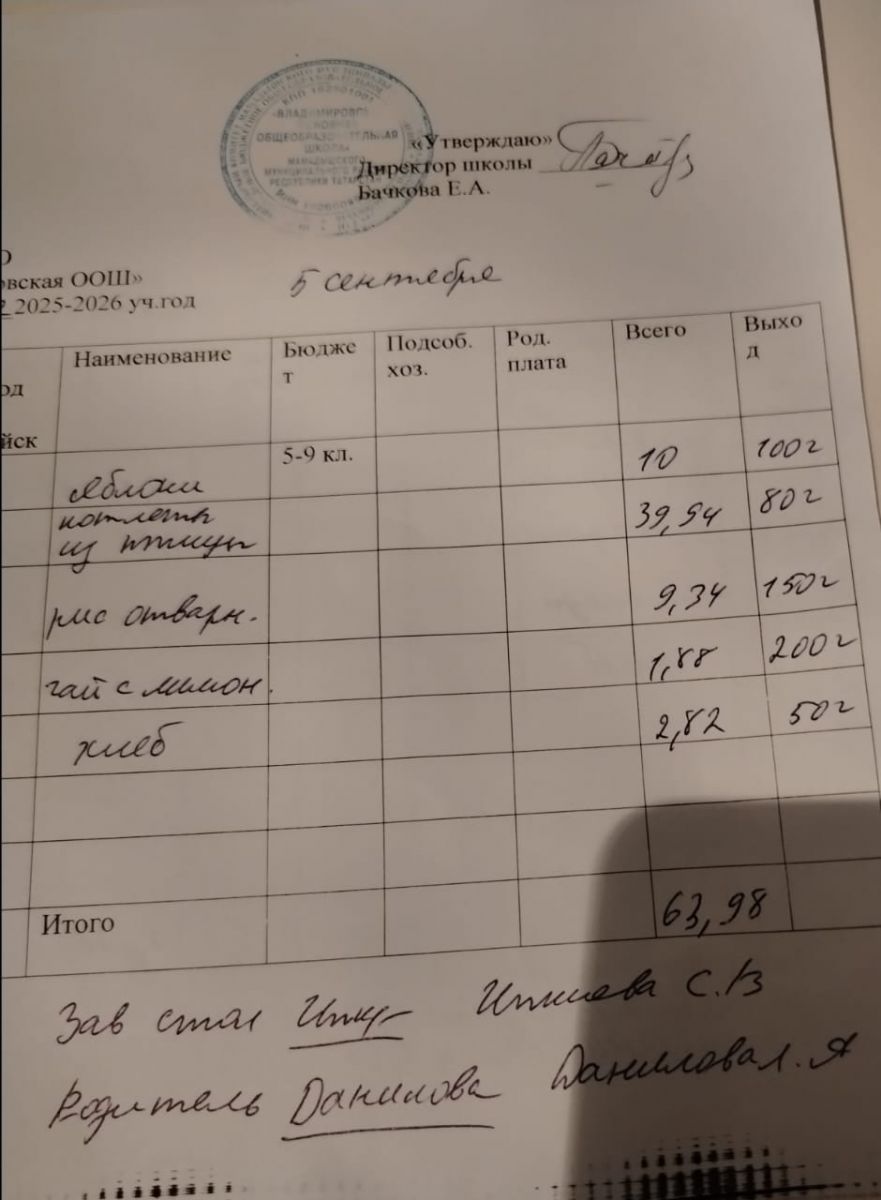 КПП 162601001
«ВЛАДИМИРОВ
ОСНОВНАЯ
ОБЩЕОБРАЗОВАТЕЛЬНАЯ
ШКОЛА»
МАМАДЫШСКОГО
МУНИЦИПАЛЬНОГО
РЕСПУБЛИКИ ТАТАРСТАН
«Утверждаю»
Директор школы
Бачкова Е.А.
О
овская ООШ»
2025-2026 уч.год
5 сентября
од
йск
Наименование
Бюдже
т
Подсоб.
хоз.
Род.
плата
Всего
Выхо
д
яблоки 5-9 кл. 10 100г
котлеты
из птицы 39,94 80г
рис отварн. 9,34 150г
чай с лимон. 1,88 200г
хлеб 2,82 50г
Итого 63,98
Зав стол С.В
Родитель Данилова Данилова Л.А